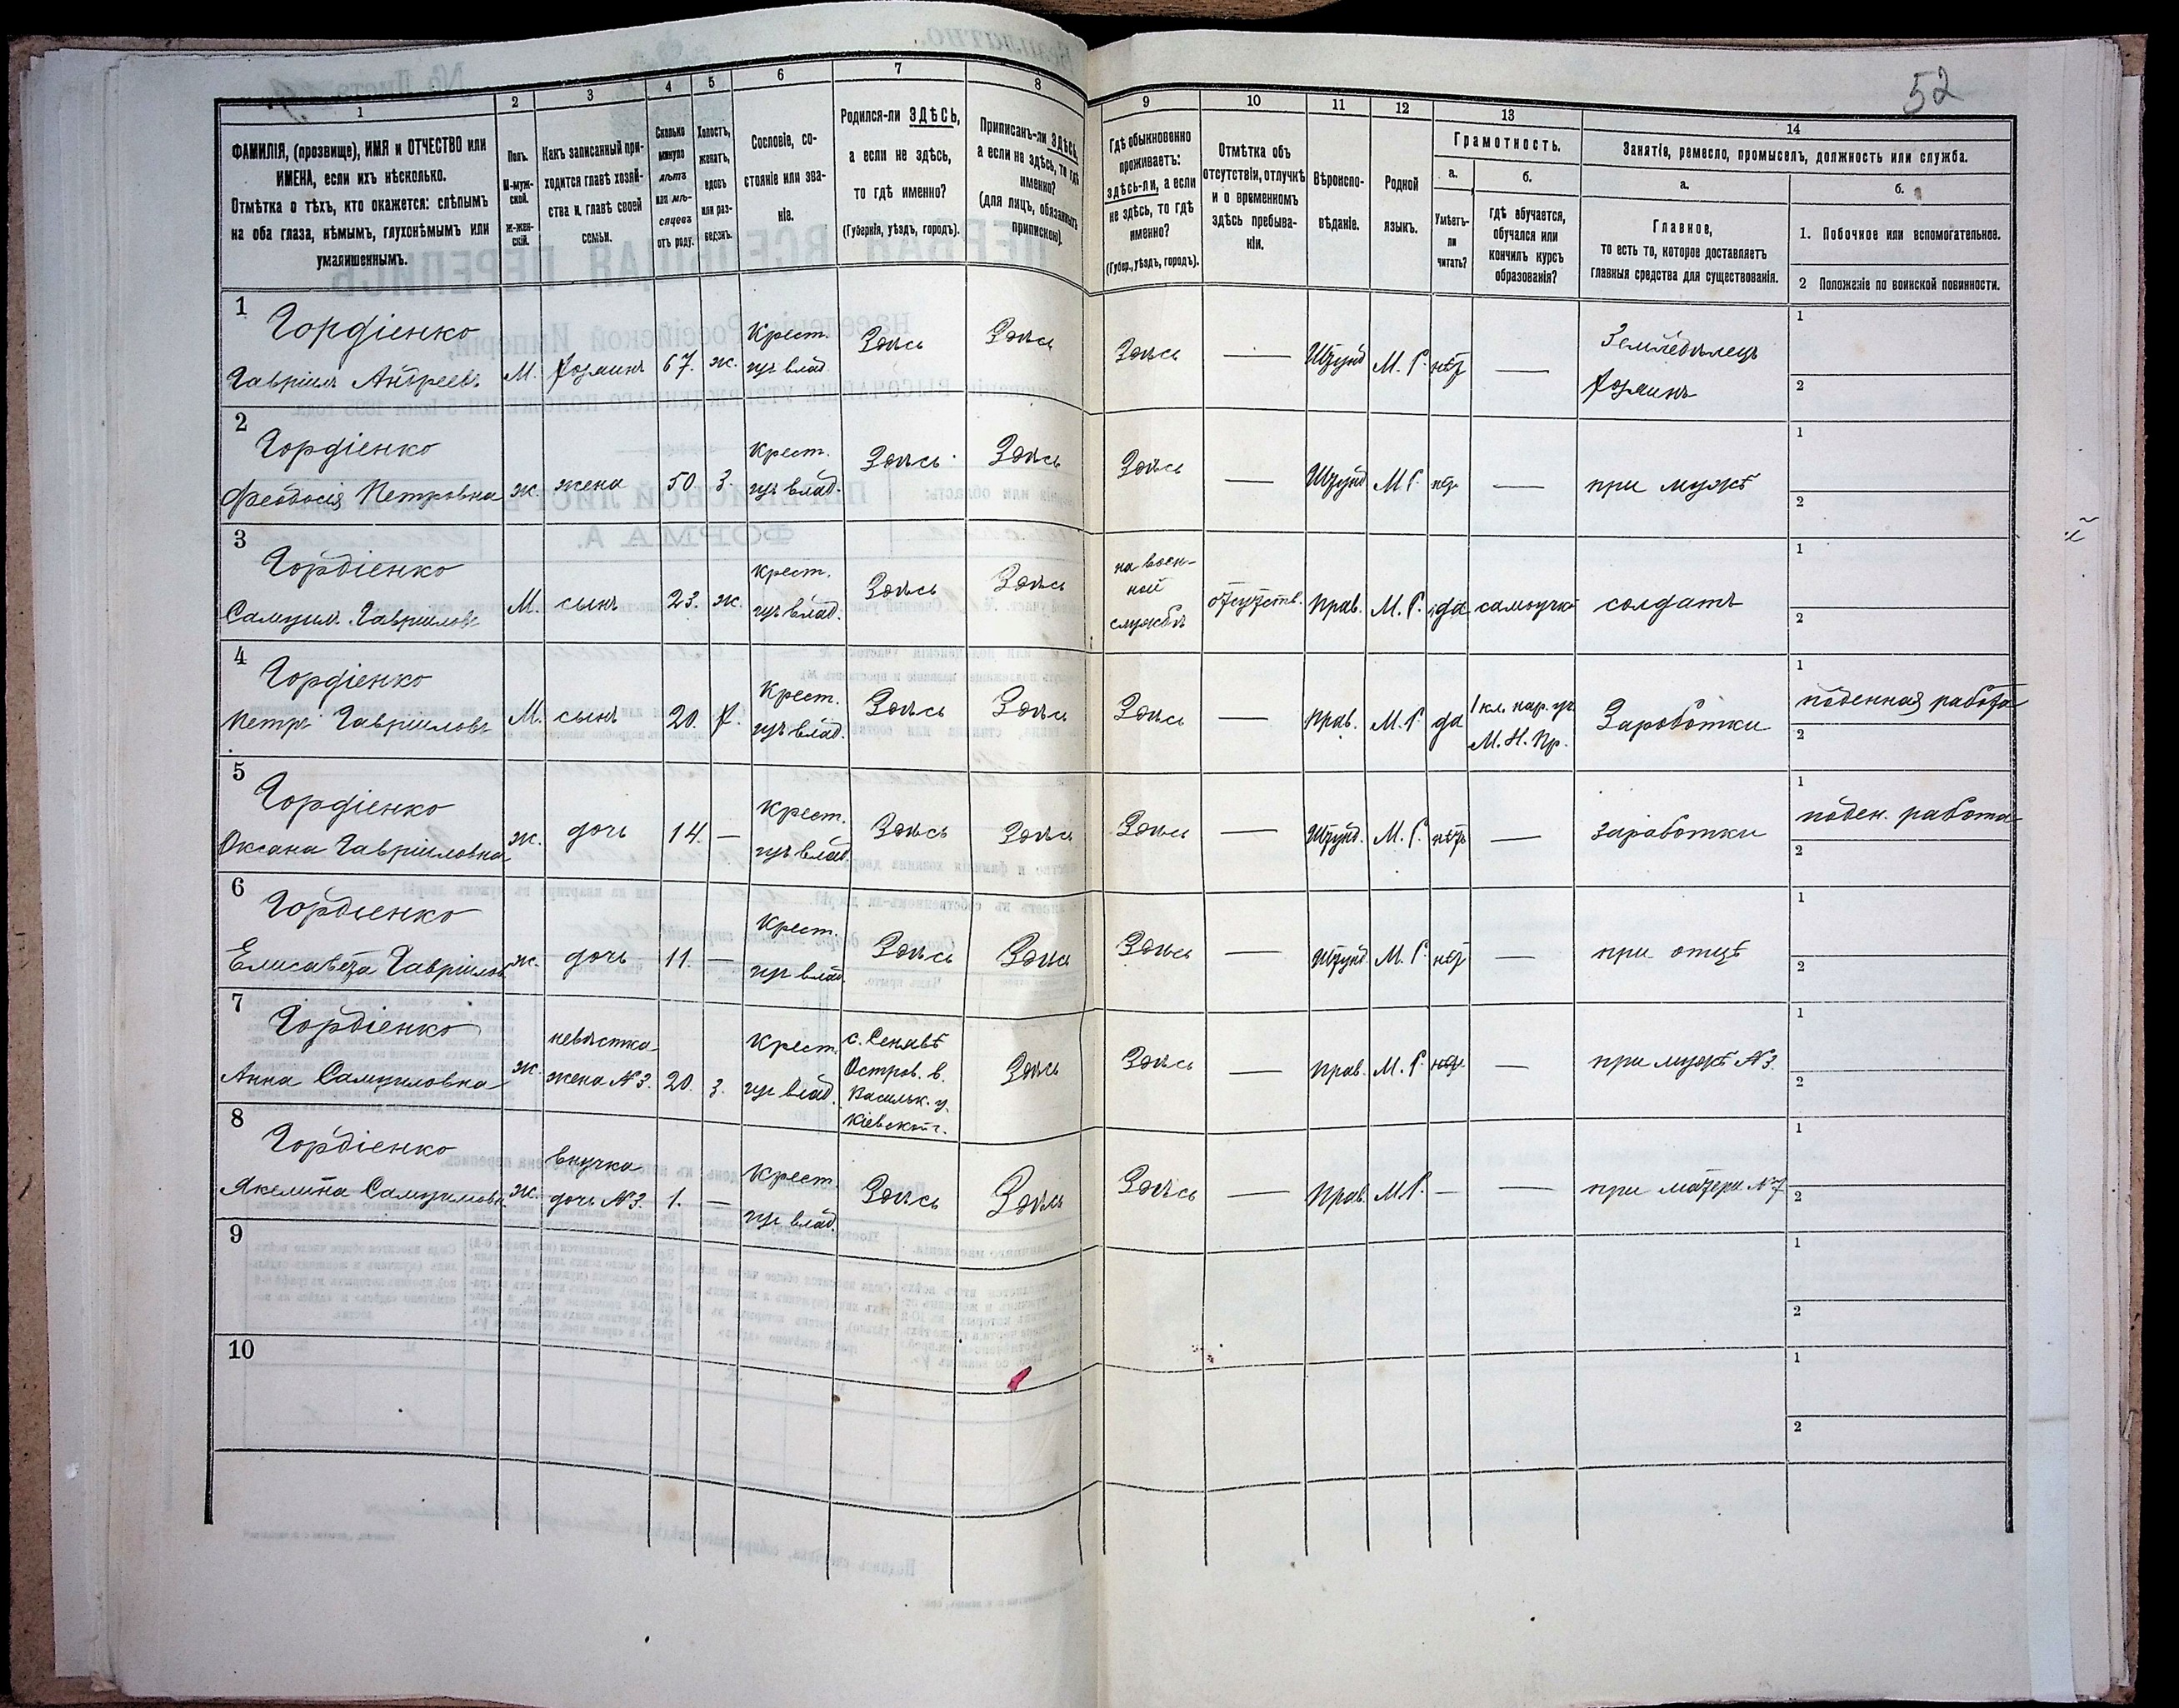 52
1 2 3 4 5 6 7 8 9 10 11 12 13 14
ФАМИЛІЯ, (прозвище), ИМЯ и ОТЧЕСТВО или
ИМЕНА, если ихъ нѣсколько.
Отмѣтка о тѣхъ, кто окажется: слѣпымъ
на оба глаза, нѣмымъ, глухонѣмымъ или
умалишеннымъ.
Полъ.
М-муж-
ской.
ж-жен-
скій.
Какъ записанный при-
ходится главѣ хозяй-
ства и главѣ своей
семьи.
Сколько
минуло
лѣтъ
или мѣ-
сяцевъ
отъ роду.
Холостъ,
женатъ,
вдовъ
или раз-
веденъ.
Сословіе, со-
стояніе или зва-
ніе.
Родился-ли ЗДѢСЬ,
а если не здѣсь,
то гдѣ именно?
(Губернія, уѣздъ, городъ).
Приписанъ-ли ЗДѢСЬ,
а если не здѣсь, то гдѣ
именно?
(для лицъ, обязанныхъ
припискою).
Гдѣ обыкновенно
проживаетъ:
здѣсь-ли, а если
не здѣсь, то гдѣ
именно?
(Губер., уѣздъ, городъ).
Отмѣтка объ
отсутствіи, отлучкѣ
и о временномъ
здѣсь пребыва-
ніи.
Вѣроиспо-
вѣданіе.
Родной
языкъ.
Грамотность.
а.
Умѣетъ-
ли
читать?
б.
Гдѣ обучается,
обучался или
кончилъ курсъ
образованія?
Занятіе, ремесло, промыселъ, должность или служба.
а.
Главное,
то есть то, которое доставляетъ
главныя средства для существованія.
б.
1. Побочное или вспомогательное.
2 Положеніе по воинской повинности.
1
Гордіенко
Гавріилъ Андреевъ М. Хозяинъ 67. ж. Крест. Здѣсь Здѣсь Здѣсь — Штунд М. Р. нѣт — Земледѣлецъ 1
изъ влад. Хозяинъ 2
2
Гордіенко
Феодосія Петровна ж. жена 50. З. Крест. Здѣсь Здѣсь Здѣсь — Штунд М. Р. нѣт — при мужѣ 1
изъ влад. 2
3
Гордіенко
Самуил. Гавріиловъ М. сынъ 23. ж. Крест. Здѣсь Здѣсь на воен- отсутств. Прав. М. Р. да самоучк. солдатъ 1
изъ влад. ной 2
службѣ
4
Гордіенко
Петръ Гавріиловъ М. сынъ 20. Х. Крест. Здѣсь Здѣсь Здѣсь — Прав. М. Р. да 1 кл. нар. уч. Заработки 1 поденная работа
изъ влад. М. Н. Пр. 2
5
Гордіенко
Оксана Гавріиловна ж. дочь 14. — Крест. Здѣсь Здѣсь Здѣсь — Штунд. М. Р. нѣт — заработки 1 поден. работа
изъ влад. 2
6
Гордіенко
Елисавета Гавріилов. ж. дочь 11. — Крест. Здѣсь Здѣсь Здѣсь — Штунд М. Р. нѣт — при отцѣ 1
изъ влад. 2
7
Гордіенко
Анна Самуиловна ж. невѣстка Крест. Здѣсь Здѣсь — Прав. М. Р. нѣт — при мужѣ №3. 1
жена №3. 20. З. изъ влад. 2
Остров. в.
Васильк. у.
Кіевской г.
8
Гордіенко
Самуилова ж. внучка Крест. Здѣсь Здѣсь Здѣсь — Прав. М. Р. — — при матери №7 1
дочь №3. 1. — изъ влад. 2
9 1
2
10 1
2